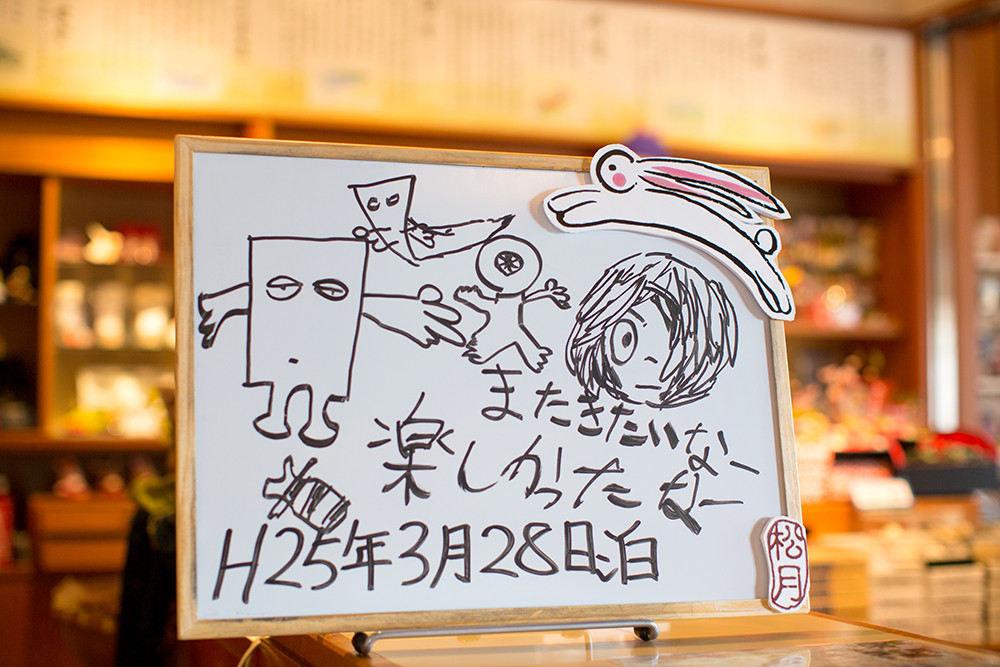 またきたいなー
楽しかったなー
H25年3月28日泊
松月